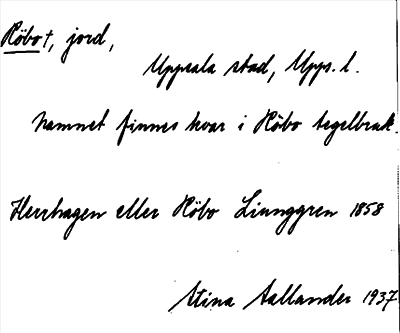 Röbo†, jord,
Uppsala stad, Upps. l.
Namnet finnes kvar i Röbo tegelbruk.
Herrhagen eller Röbo Ljunggren 1858
Stina Aallander 1937